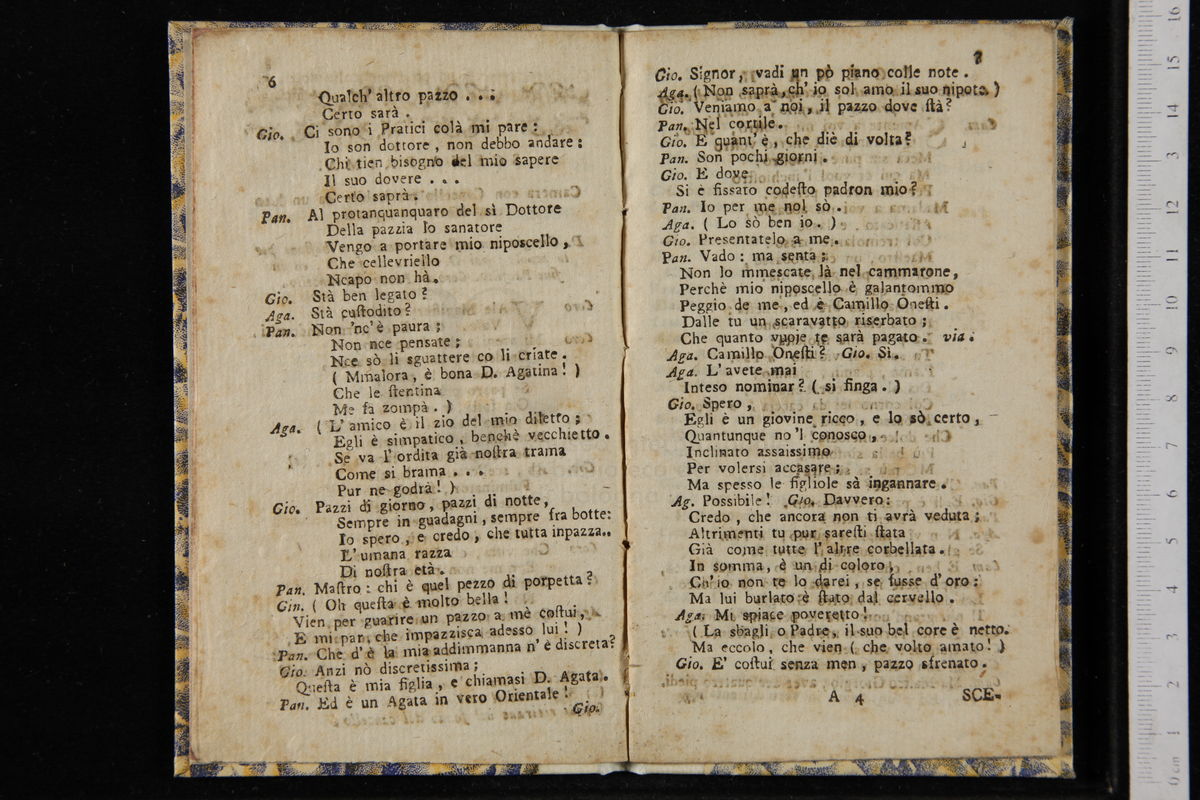 6
Qualch' altro pazzo . . .
Certo sarà .
Gio. Ci sono i Pratici colà mi pare :
Io son dottore , non debbo andare :
Chi tien bisogno del mio sapere
Il suo dovere . . .
Certo saprà .
Pan. Al protanquanquaro del sì Dottore
Della pazzia lo sanatore
Vengo a portare mio niposcello ,
Che cellevriello
Ncapo non hà .
Gio. Stà ben legato ?
Aga. Stà cuſtodito ?
Pan. Non 'nc' è paura ;
Non nce pensate ;
Nce sò li sguattere co li criate .
( Mmalora , è bona D. Agatina ! )
Che le ſtentina
Me fà zompà . )
Aga. ( L' amico è il zio del mio diletto ;
Egli è simpatico , benchè vecchietto .
Se va l' ordita già noſtra trama
Come si brama . . .
Pur ne godrà ! )
Gio. Pazzi di giorno , pazzi di notte ,
Sempre in guadagni , sempre fra botte :
Io spero , e credo , che tutta inpazza ..
L' umana razza
Di noſtra età .
Pan. Maſtro : chi è quel pezzo di porpetta ?
Gin. ( Oh queſta è molto bella !
Vien per guarire un pazzo a mè coſtui ,
E mi par , che impazzisca adesso lui ! )
Pan. Che d' è la mia addimmanna n' è discreta ?
Gio. Anzi nò discretissima ;
Queſta è mia figlia , e chiamasi D. Agata .
Pan. Ed è un Agata in vero Orientale !
Gio.
7
Gio. Signor , vadi un pò piano colle note .
Aga. ( Non saprà , ch' io sol amo il suo nipote . )
Gio. Veniamo a noi , il pazzo dove ſtà ?
Pan. Nel cortile .
Gio. E quant' è , che diè di volta ?
Pan. Son pochi giorni .
Gio. E dove
Si è fissato codeſto padron mio ?
Pan. Io per me nol sò .
Aga. ( Lo sò ben io . )
Gio. Presentatelo a me .
Pan. Vado : ma senta ;
Non lo mmescate là nel cammarone ,
Perchè mio niposcello è galantommo
Peggio de me , ed è Camillo Oneſti .
Dalle tu un scaravatto riserbato ;
Che quanto vuoje te sarà pagato . via .
Aga. Camillo Oneſti ? Gio. Sì .
Aga. L' avete mai
Inteso nominar ? ( si finga . )
Gio. Spero ,
Egli è un giovine ricco , e lo sò certo ,
Quantunque no 'l conosco ,
Inclinato assaissimo
Per volersi accasare ;
Ma spesso le figliole sà ingannare .
Ag. Possibile ! Gio. Davvero :
Credo , che ancora non ti avrà veduta ;
Altrimenti tu pur sareſti ſtata
Già come tutte l' altre corbellata .
In somma , è un di coloro ,
Ch' io non te lo darei , se fusse d' oro :
Ma lui burlato è ſtato dal cervello .
Aga. Mi spiace poveretto !
( La sbagli o Padre , il suo bel core è netto .
Ma eccolo , che vien ( che volto amato ! )
Gio. E' coſtui senza men , pazzo sfrenato .
A 4 SCE-